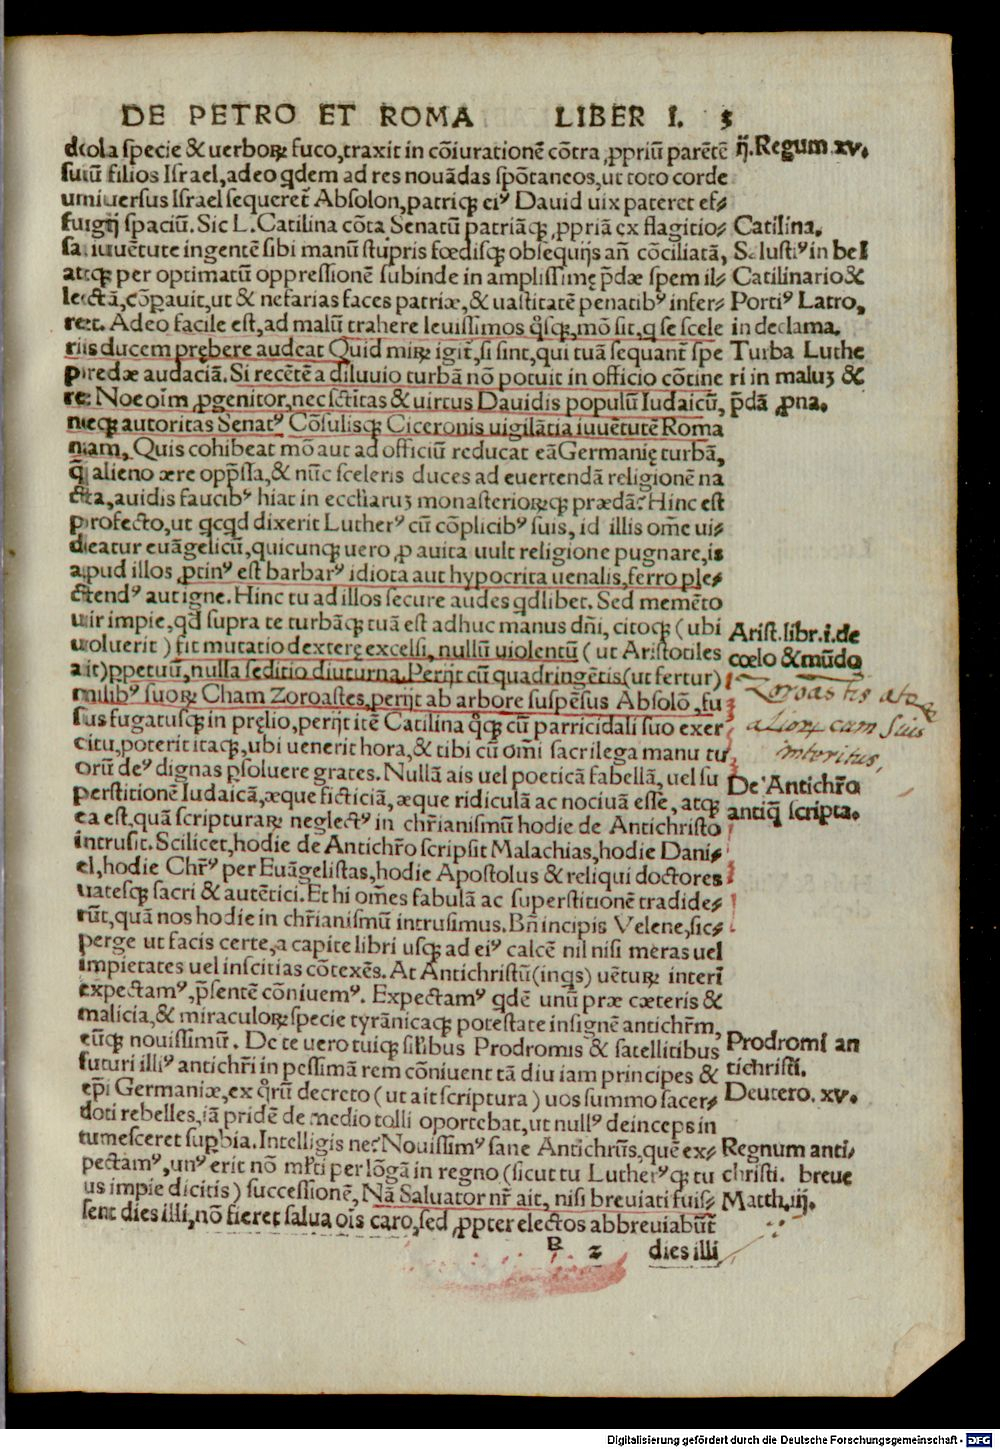 DE PETRO ET ROMA LIBER I. 5
dcola specie & uerboꝝ fuco, traxit in cõiurationẽ cõtra ꝓpriũ parẽtẽ
suũ filios Israel, adeo qdem ad res nouãdas spõtaneos, ut toto corde
uniuersus Israel sequeret̃ Absolon, patriq; eiꝰ Dauid uix pateret ef⸗
fugij spaciũ. Sic L. Catilina cõta Senatũ patriãq; ꝓpriã ex flagitio⸗
sa iuuẽtute ingentẽ sibi manũ stupris fœdisq; obsequijs añ cõciliatã,
atq; per optimatũ oppressionẽ subinde in amplissimę p̃dæ spem il⸗
lectã, cõpauit, ut & nefarias faces patriæ, & uastitatẽ penatibꝰ infer⸗
ret. Adeo facile est, ad malũ trahere leuissimos q̊sq;, mõ sit, q se scele
riis ducem prębere audeat Quid miꝝ igit̃, si sint, qui tuã sequant̃ spe
predæ audaciã. Si recẽtẽ a diluuio turbã nõ potuit in officio cõtine
re: Noe oĩm ꝓgenitor, nec sctitas & uirtus Dauidis populũ Iudaicũ,
necq; autoritas Senatꝰ Cõsulisq; Ciceronis uigilãtia iuuẽtutẽ Roma
nam, Quis cohibeat mõ aut ad officiũ reducat eã Germanię turbã,
q̃ alieno ære opp̃ssa, & nũc sceleris duces ad euertendã religionẽ na
cta, auidis faucibꝰ hiat in eccliaruʒ monasterioꝝq; prædã? Hinc est
profecto, ut qcqd dixerit Lutherꝰ cũ cõplicibꝰ suis, id illis om̃e ui⸗
deatur euãgelicũ, quicunq; uero ꝓ auita uult religione pugnare, is
apud illos ꝓtinꝰ est barbarꝰ idiota aut hypocrita uenalis, ferro ple⸗
ctendꝰ aut igne. Hinc tu ad illos secure audes qdlibet. Sed memẽto
uir impie, qd̃ supra te turbãq; tuã est adhuc manus dñi, citoq; (ubi
uoluerit) fit mutatio dexterę excelsi, nullũ uiolentũ (ut Aristotiles
ait) ppetuũ, nulla seditio diuturna. Perijt cũ quadringẽtis (ut fertur)
milibꝰ suoꝝ Cham Zoroastes, perijt ab arbore suspẽsus Absolõ, fu
sus fugatusq; in pręlio, perijt itẽ Catilina q̊q; cũ parricidali suo exer
citu, poterit itaq;, ubi uenerit hora, & tibi cũ om̃i sacrilega manu tu
orũ deꝰ dignas p̱soluere grates. Nullã ais uel poeticã fabellã, uel su
perstitionẽ Iudaicã, æque ficticiã, æque ridiculã ac nociuã esse, atq;
ea est, quã scripturaꝝ neglectꝰ in chr̃ianismũ hodie de Antichristo
intrusit. Scilicet, hodie de Antichr̃o scripsit Malachias, hodie Dani⸗
el, hodie Chr̃ꝰ per Euãgelistas, hodie Apostolus & reliqui doctores
uatesq; sacri & autẽtici. Et hi om̃es fabulã ac superstitionẽ tradide⸗
rũt, quã nos hodie in chr̃ianismũ intrusimus. Bñ incipis Velene, sic⸗
perge ut facis certe, a capite libri usq; ad eiꝰ calcẽ nil nisi meras uel
impietates uel inscitias cõtexẽs. At Antichristũ (inqs) uẽtuꝝ interĩ
expectamꝰ, p̃sentẽ cõniuemꝰ. Expectamꝰ qdẽ unũ præ cæteris &
malicia, & miraculoꝝ specie tyrãnicaq; potestate insignẽ antichr̃m,
eũq; nouissimũ. De te uero tuiq; sil̃ibus Prodromis & satellitibus
futuri illiꝰ antichr̃i in pessimã rem cõniuent tã diu iam principes &
ep̃i Germaniæ, ex q̊rũ decreto (ut ait scriptura) uos summo sacer⸗
doti rebelles, iã pridẽ de medio tolli oportebat, ut nullꝰ deinceps in
tumesceret sup̱bia. Intelligis ne? Nouissimꝰ sane Antichr̃us, quẽ ex⸗
pectamꝰ, unꝰ erit nõ ml̃ti per lõgã in regno (sicut tu Lutherꝰq; tu
us impie dicitis) successionẽ, Nã Saluator nr̃ ait, nisi breuiati fuis⸗
sent dies illi, nõ fieret salua ois caro, sed ꝓpter electos abbreuiabũt̃
B 2 dies illi
ij. Regum xv.
Catilina.
Salustiꝰ in bel
Catilinario &
Portiꝰ Latro,
in declama.
Turba Luthe
ri in maluʒ &
p̃dã ꝓna.
Arist. libr. i. de
cœlo & mũdo
Zoroastis
alioꝝ cum suis
interitus,
De Antichr̃o
antiq̃ scripta.
Prodromi an
tichristi.
Deutero. xv.
Regnum anti⸗
christi. breue
Matth. iij.
Digitalisierung gefördert durch die Deutsche Forschungsgemeinschaft - DFG